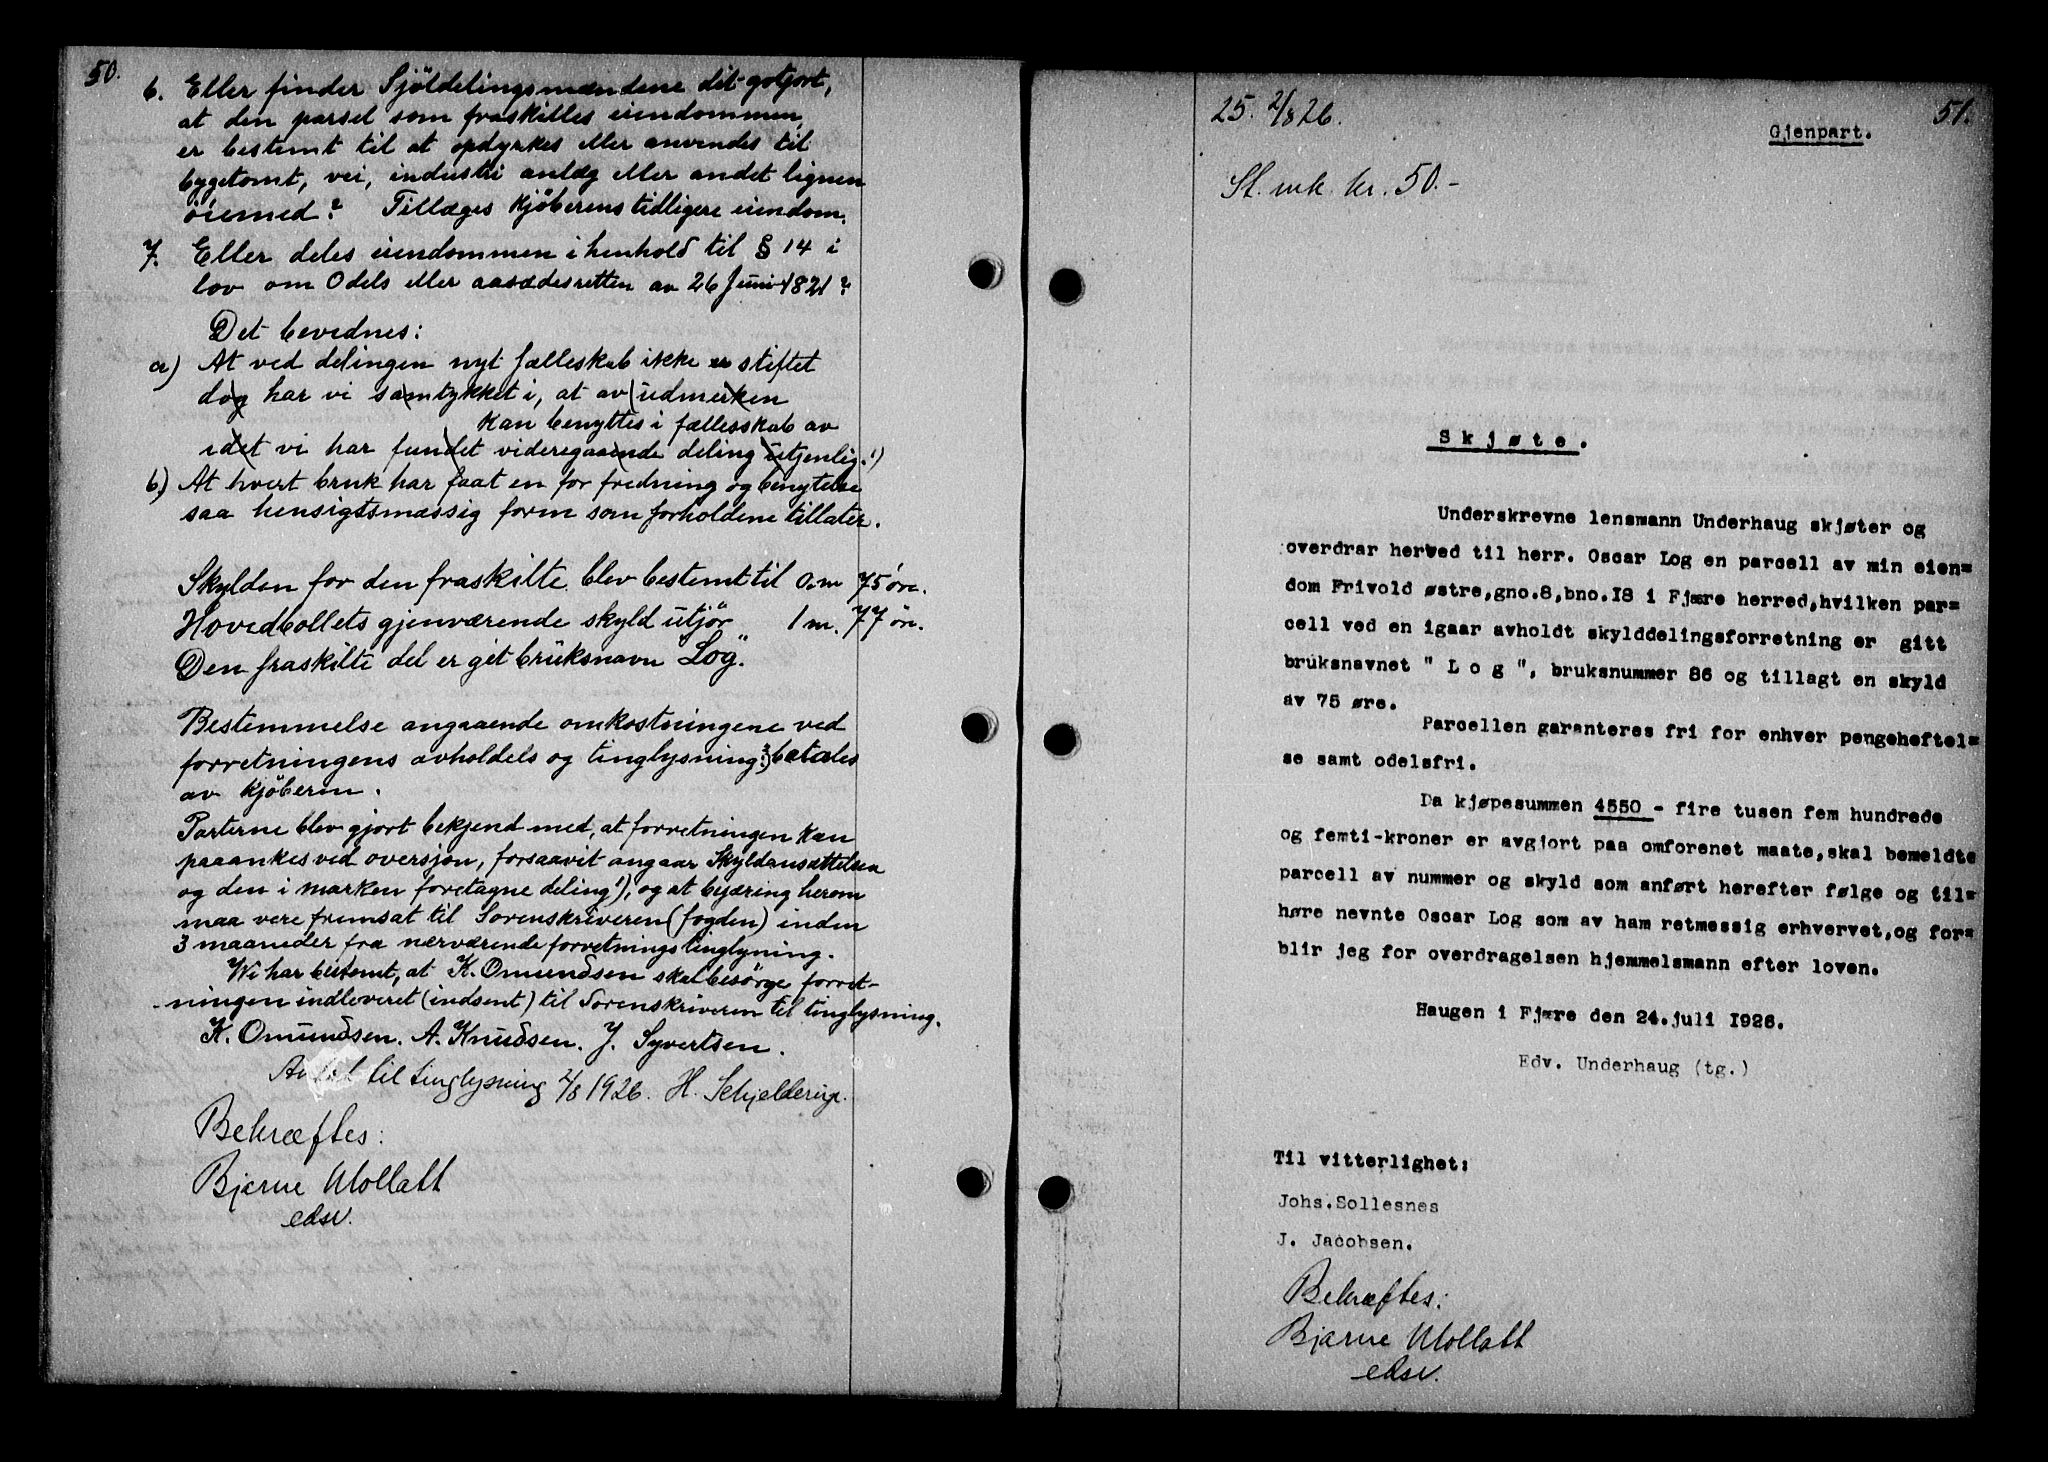 50.
6. Eller finder Sjöldelingsmændene dit gotjort,
at den parsel som fraskilles eiendommen,
er bestemt til at opdyrkes eller anvendes til
bygetomt, vei, industri anlæg eller andet lignen
öiemed? Tillæges kjöberens tidligere eiendom.
7. Eller deles eiendommen i henhold til § 14 i
lov om Odels eller aasædesretten av 26 Juni 1821?
Det bevidnes:
a) At ved delingen nyt fælleskab ikke er stiftet
dog har vi samtykket i, at av udmerken
kan benyttes i fællesskab av
idet vi har fundet videregaaende deling utjenlig.¹)
b) At hvert bruk har faat en for fredning og benytelse
saa hensigtsmæssig form som forholdene tillater.
Skylden for den fraskilte blev bestemt til 0 m 75 öre.
Hovedbollets gjenværende skyld utjör 1 m. 77 ör.
Den fraskilte del er git bruksnavn "Log".
Bestemmelse angaaende omkostningene ved
forretningens avholdels og tinglysning:³) betales
av kjöberen.
Parterne blev gjort bekjend med, at forretningen kan
paaankes ved oversjön, forsaavit angaar Skyldansættelsen
og den i marken foretagne deling¹), og at bejæring herom
maa vere fremsat til Sorenskriveren (fogden) inden
3 maaneder fra nærværende forretnings tinglyning.
Wi har bestemt, at K. Omundsen skal besörge forret-
ningen indleveret (indsent) til Sorenskriveren til tinglysning.
K. Omundsen. A. Knudsen. J. Syvertsen.
til tinglysning 2/8 1926. H. Schjelderup.
Bekræftes:
Bjarne Mollatt
edsv.
25. 2/8 26.
51.
Gjenpart.
St. mk. kr. 50.-
Skjøte.
Underskrevne lensmann Underhaug skjøter og
overdrar herved til herr. Oscar Log en parcell av min eien=
dom Frivold østre,gno.8,bno.18 i Fjære herred,hvilken par=
cell ved en igaar avholdt skylddelingsforretning er gitt
bruksnavnet " L o g ", bruksnummer 86 og tillagt en skyld
av 75 øre.
Parcellen garanteres fri for enhver pengeheftel=
se samt odelsfri.
Da kjøpesummen 4550 - fire tusen fem hundrede
og femti-kroner er avgjort paa omforenet maate,skal bemeldte
parcell av nummer og skyld som anført herefter følge og til=
høre nevnte Oscar Log som av ham retmessig erhvervet,og for=
blir jeg for overdragelsen hjemmelsmann efter loven.
Haugen i Fjære den 24.juli 1926.
Edv. Underhaug (tg.)
Til vitterlighet:
Johs.Sollesnes
J. Jacobsen.
Bekræftes:
Bjarne Mollatt
edsv.